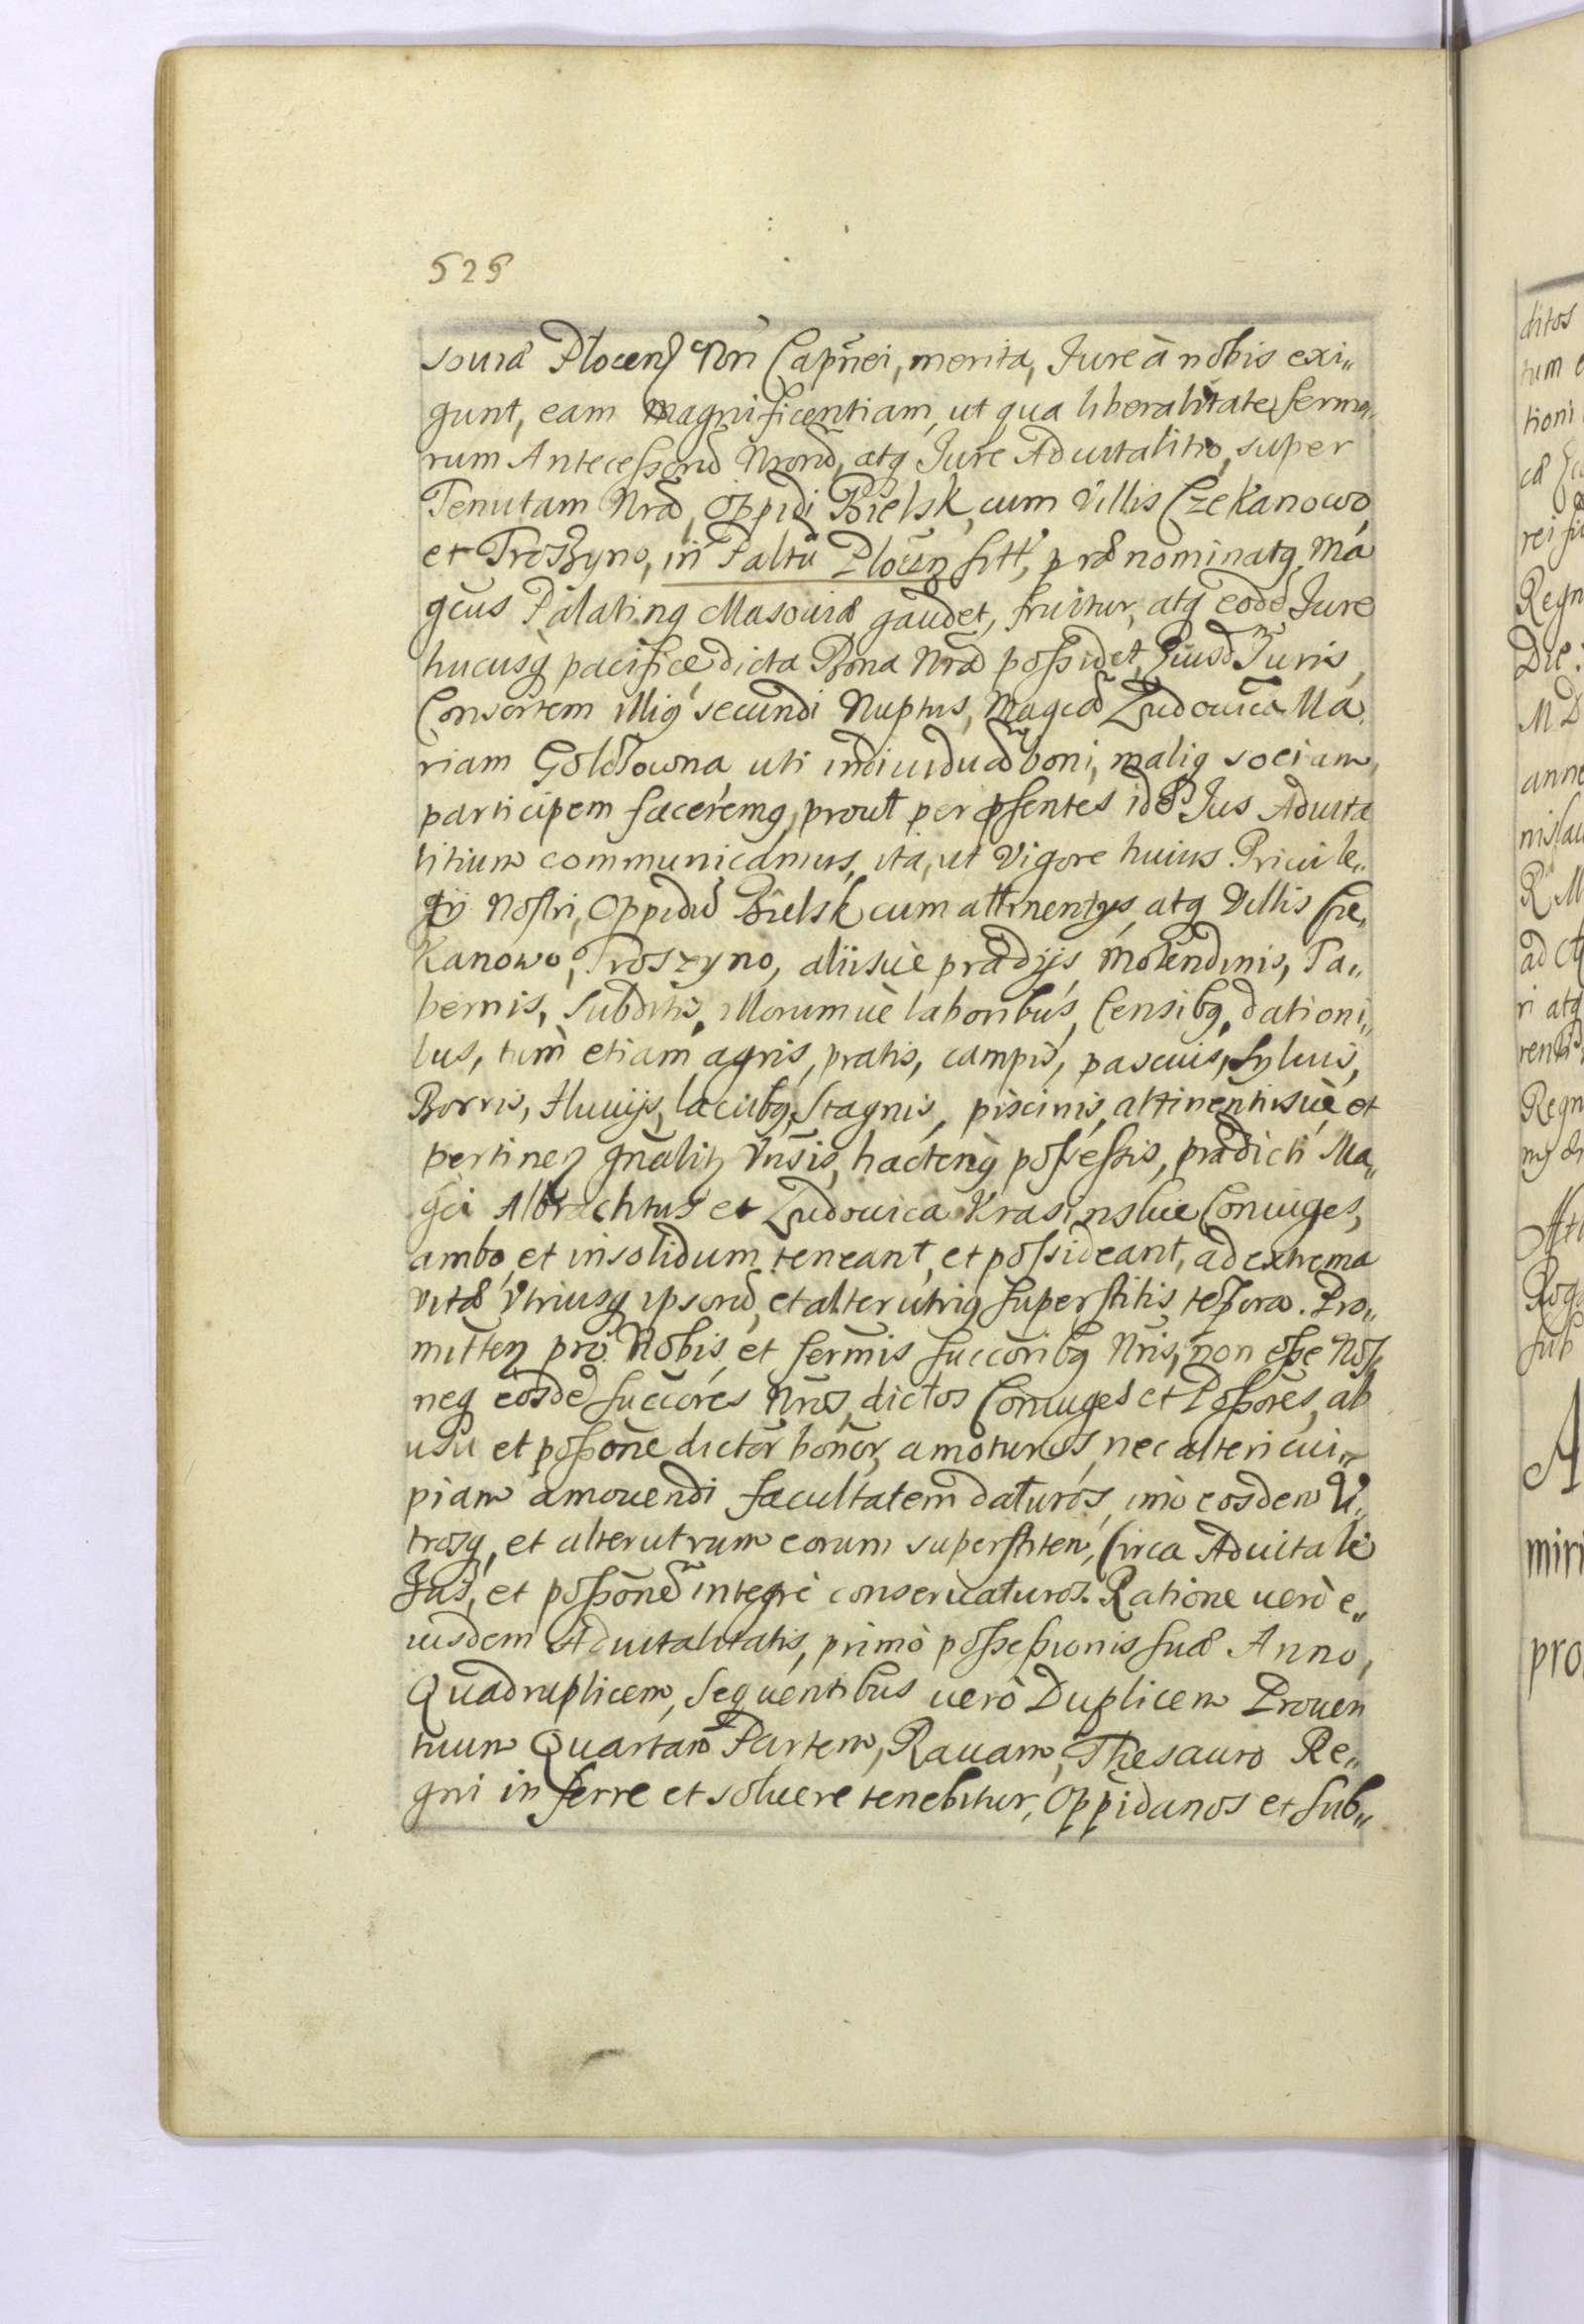 525
souiæ Plocen̄ Nri Capnei, merita, Jure à nobis exi„
gunt, eam magnificentiam, ut qua liberalitate serma„
rum Antecessorū Nrorū, atq Jure Aduitalitio, super
Tenutam Nrā, Oppidi Bielsk, cum Villis Czekanowo,
et Troszyno, in Paltū Plocen̄ sitt, prænominatq Ma
gcus Palatinq Masouiæ gaudet, fruitur, atq eodē Jure
hucusq pacificè dicta Bona Nrā possidet, Eiusdē Juris,
Consortem illiq secundi Nuptus, Magcā Ludouicā Ma„
riam Goldtowna, uti indiuiduā boni, maliq sociam,
participem faceremq, prout per pñsentes idē Jus Aduita
litium communicamus, ita, ut Vigore huius Priuile„
gij Nostri, Oppidū Bielsk cum attinentijs, atq Villis Cze„
kanowo, Troszyno, alijsuè prædijs, molendinis, Ta„
bernis, Subditis, illorumuè laboribus, Censibq, dationi„
bus, tùm etiam agris, pratis, campis, pascuis, syluis,
Borris, fluuijs, lacubq, stagnis, piscinis, attinentisuè et
pertinen̄ gñalit Vnsis, hactenq possessis, prædicti Ma„
gci Albrachtus et Ludouica Krasinskie Coniuges,
ambo, et insolidum teneant, et possideant, ad extrema
vitæ Vtriusq ipsorū, et alterutriq superstitis tp̄ora. Pro„
mitten̄ prò Nobis, et sermis succoribq Nris, non esse Nos,
neq eosdē succores Nros, dictos Coniuges et Possores, ab
usu et possone dictor bonor, amoturos, nec alteri cui„
piam amouendi facultatem daturos, imò eosdem V„
trosq, et alterutrum eorum superstitem, circa Aduitale
Jus, et possonē integrè conseruaturos. Ratione uerò e„
iusdem Aduitalitatis, primò possessionis suæ Anno,
Quadruplicem, sequentibus uerò Duplicem Prouen
tuum Quartam Partem, Rauam, Thesauro Re„
gni inferre et soluere tenebitur, Oppidanos et sub„